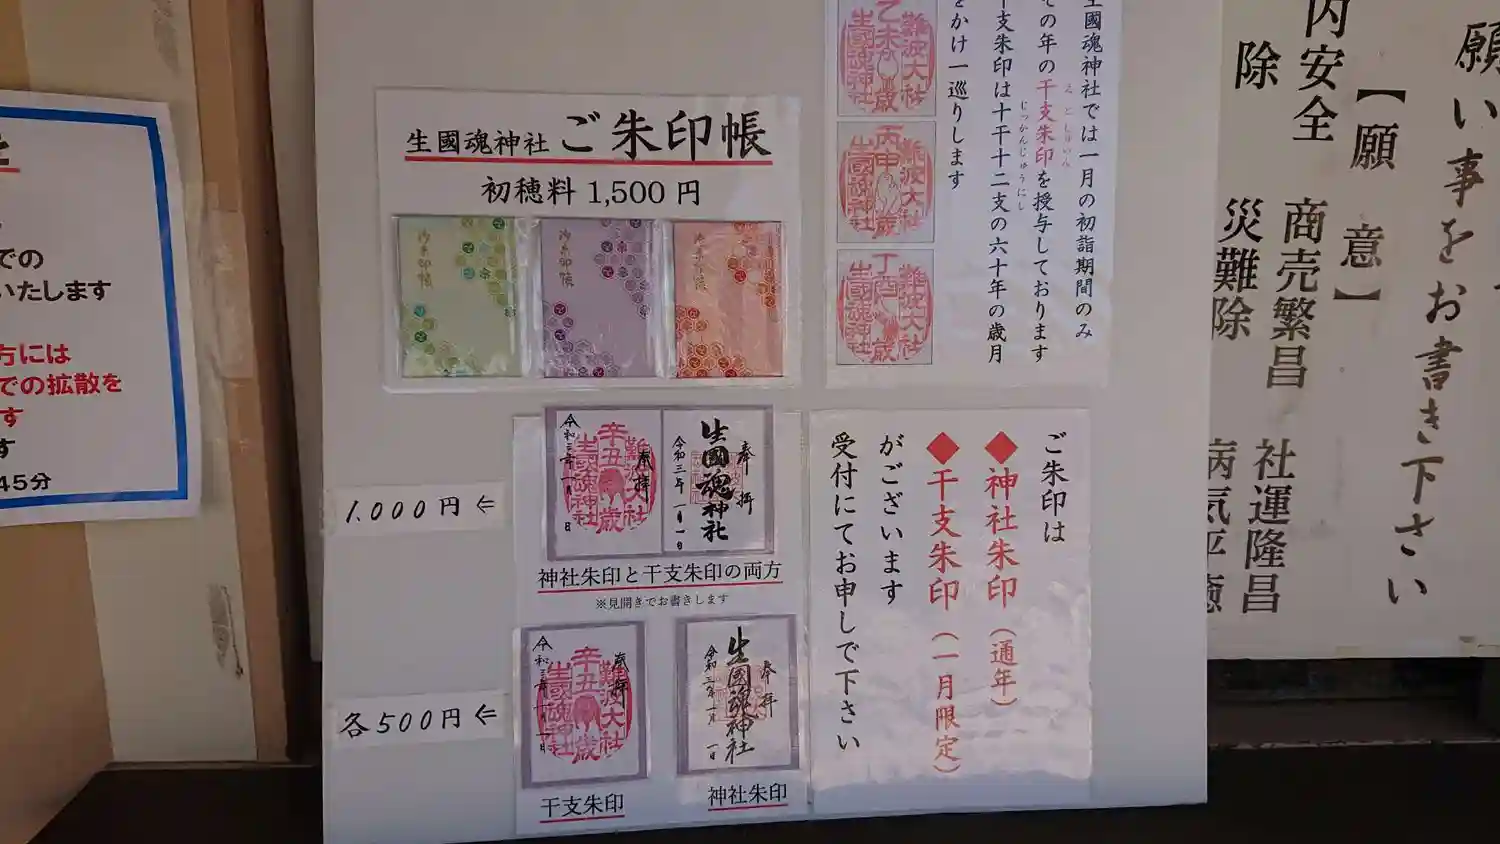 での
いたします
方には
での拡散を
す
す
45分
生國魂神社 ご朱印帳
初穂料 1,500 円
御朱印帳
御朱印帳
御朱印帳
生國魂神社では一月の初詣期間のみ
その年の干支朱印を授与しております
えとしゅいん
干支朱印は十干十二支の六十年の歳月
じっかんじゅうにし
をかけ一巡りします
難波大社
乙未歳
生國魂神社
難波大社
丙申歳
生國魂神社
難波大社
丁酉歳
生國魂神社
1.000円 ⇐
奉拝
難波大社
辛丑歳
生國魂神社
令和三年一月 日
奉拝
生國魂神社
令和三年一月一日
神社朱印と干支朱印の両方
※見開きでお書きします
各500円 ⇐
奉拝
難波大社
辛丑歳
生國魂神社
令和三年一月一日
干支朱印
奉拝
生國魂神社
令和三年一月一日
神社朱印
ご朱印は
◆神社朱印（通年）
◆干支朱印（一月限定）
がございます
受付にてお申し出下さい
願い事をお書き下さい
【願 意】
内安全 商売繁昌 社運隆昌
除 災難除 病気平癒